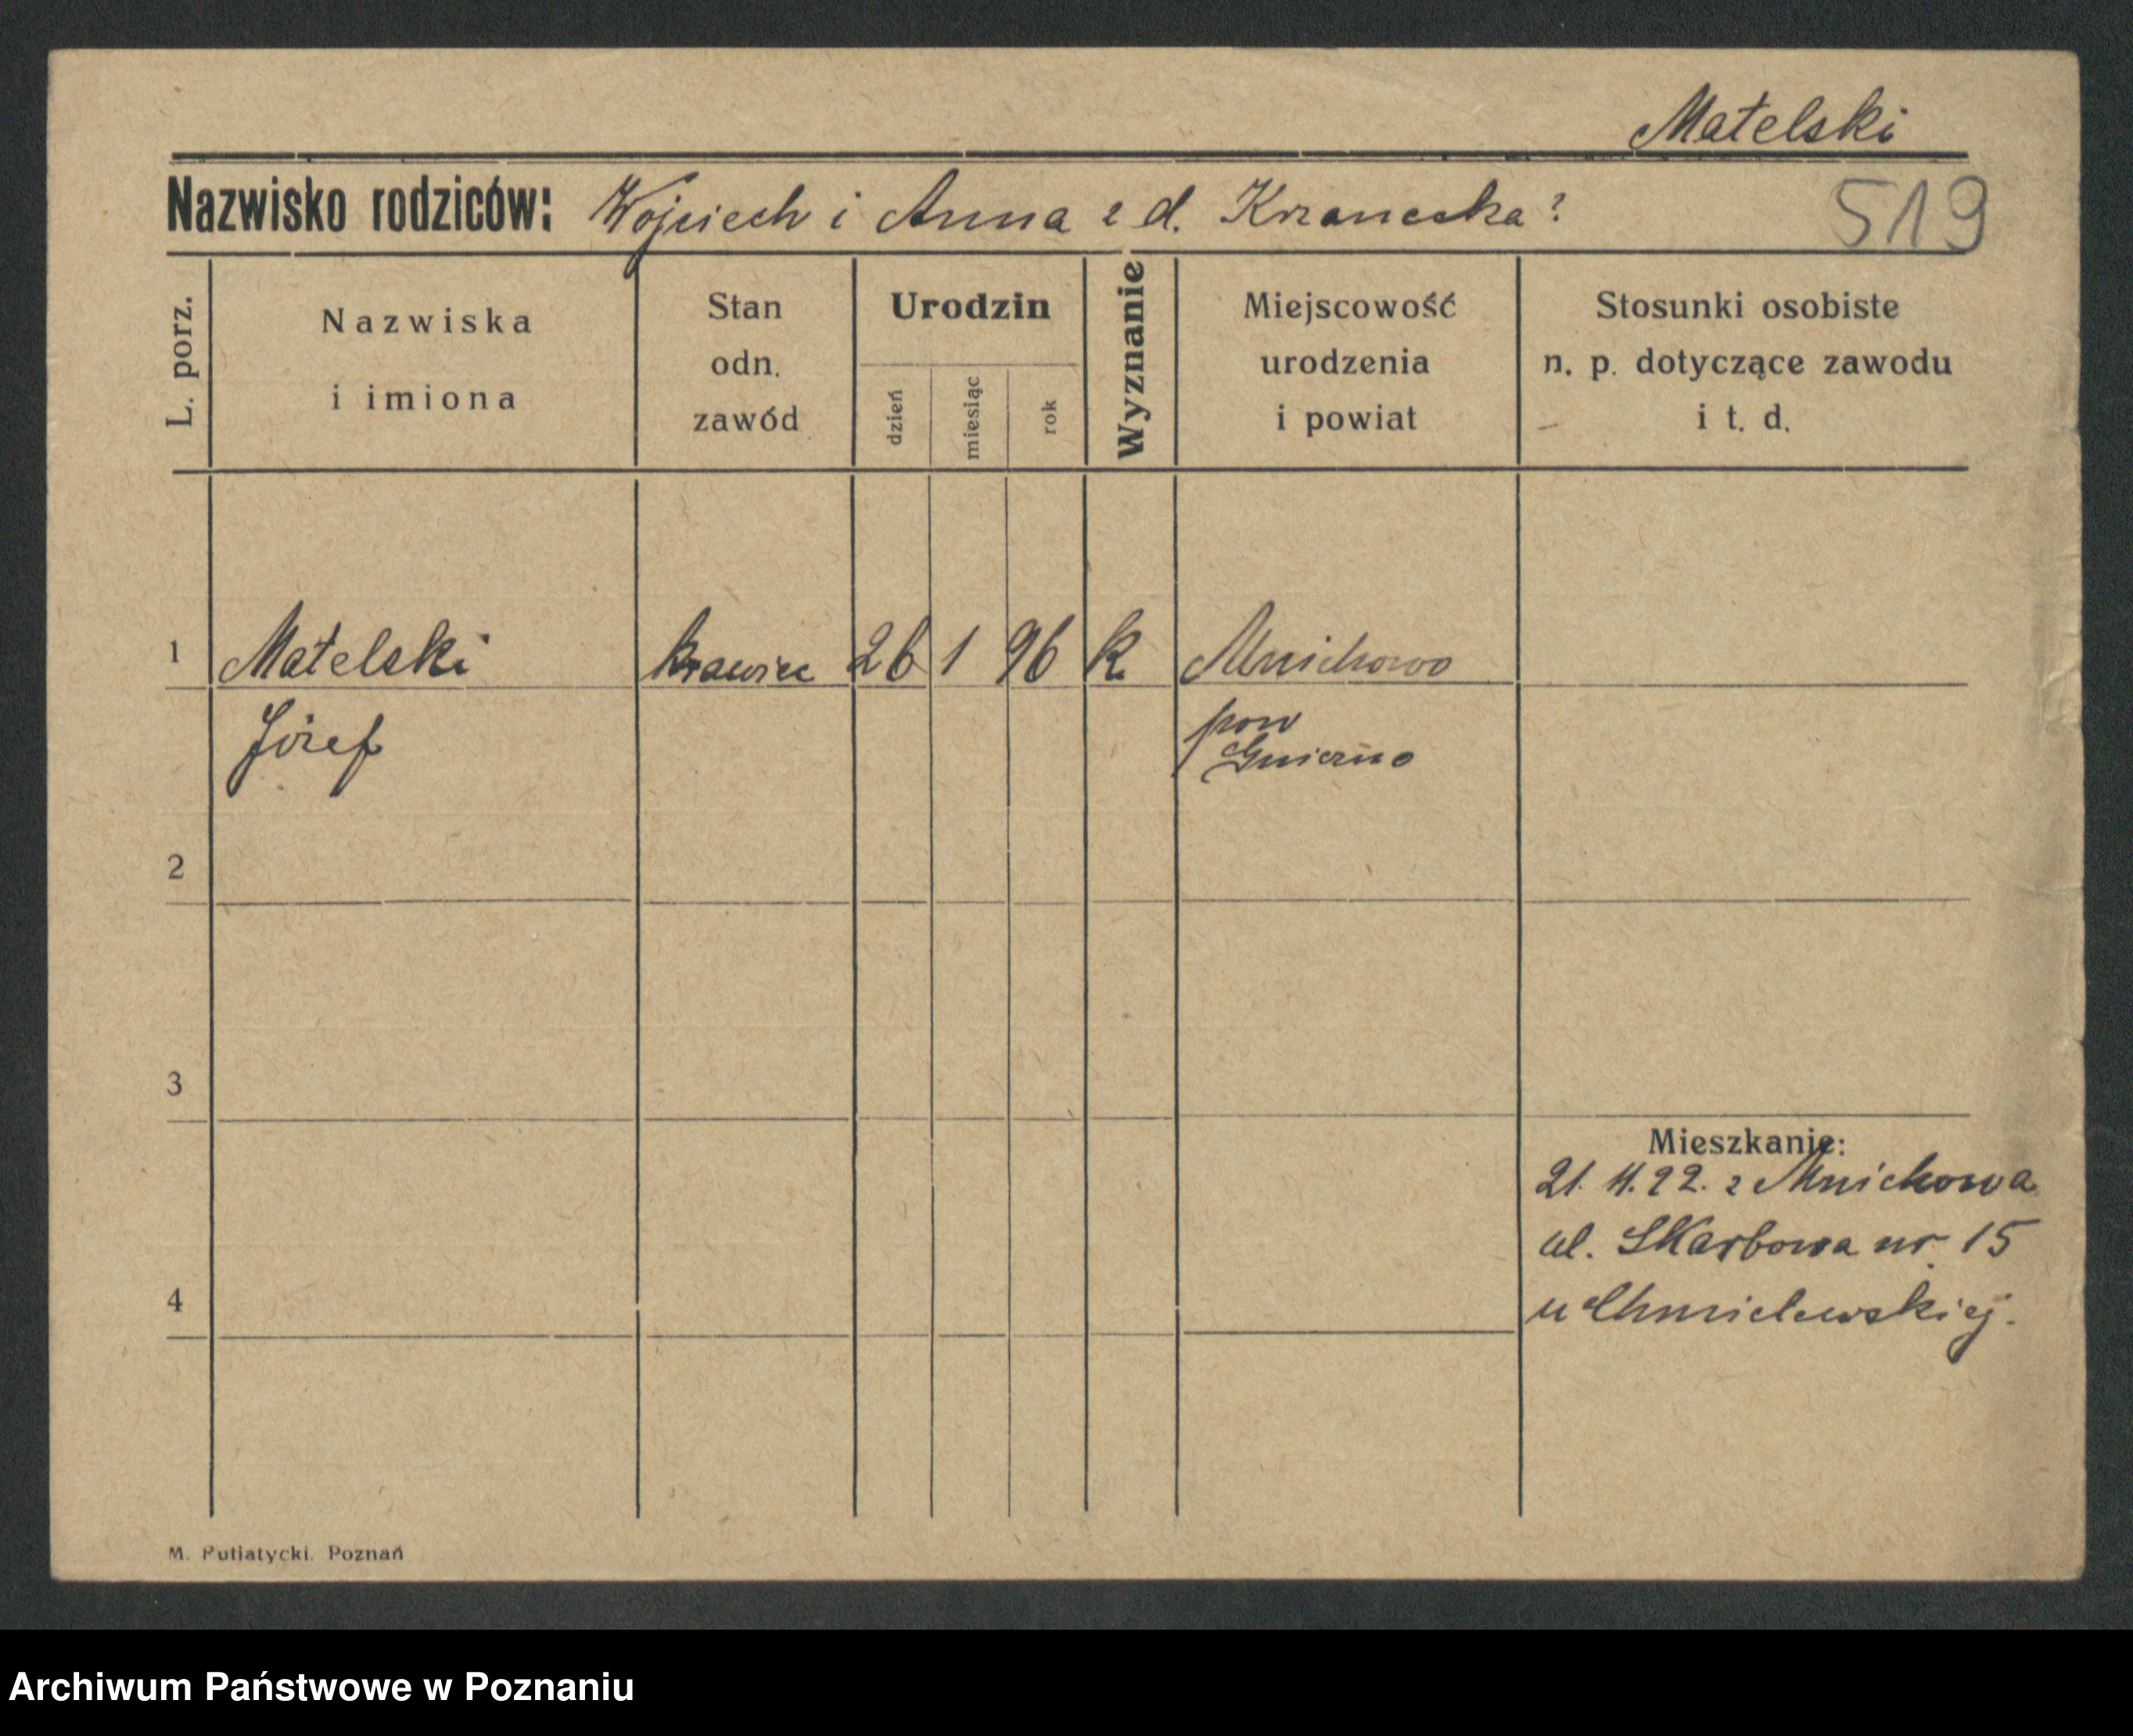 Matelski
Nazwisko rodziców: Wojciech i Anna z d. Krzanecka?
519
L. porz.
Nazwiska
i imiona
Stan
odn.
zawód
Urodzin
dzień
miesiąc
rok
Wyznanie
Miejscowość
urodzenia
i powiat
Stosunki osobiste
n. p. dotyczące zawodu
i t. d.
1 Matelski krawiec 26 1 96 k. Mnichowo
Józef
pow
Gniezno
2
3
Mieszkanie:
21. 11. 22. z Mnichowa
ul. Skarbowa nr. 15
4
u Chmielewskiej.
M. Putiatycki. Poznań
Archiwum Państwowe w Poznaniu